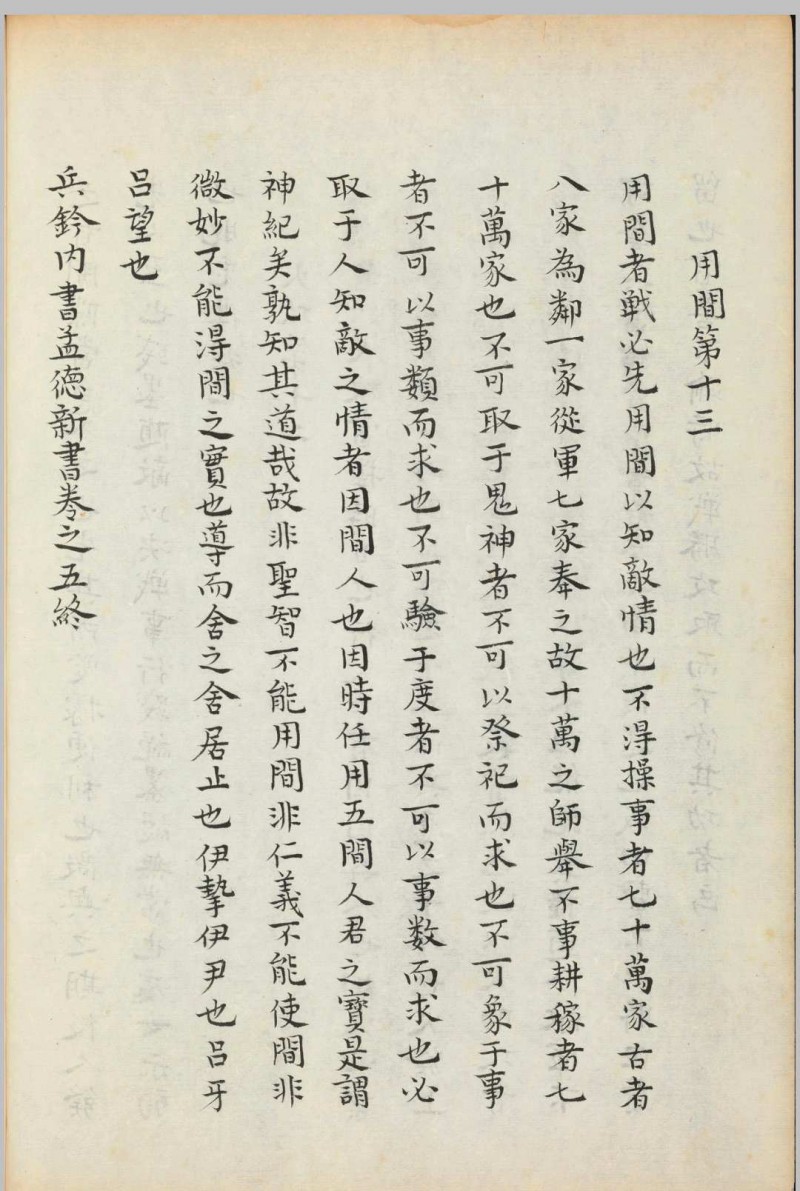 用間第十三
用間者戰必先用間以知敵情也不淂操事者七十萬家古者
八家為鄰一家從軍七家奉之故十萬之師舉不事耕稼者七
十萬家也不可取于鬼神者不可以祭祀而求也不可象于事
者不可以事類而求也不可驗于度者不可以事数而求也必
取于人知敵之情者因間人也因時任用五間人君之寶是謂
神紀矣孰知其道哉故非聖智不能用間非仁義不能使間非
微妙不能淂間之實也導而舍之舍居止也伊摯伊尹也呂牙
呂望也
兵鈐内書孟德新書卷之五終